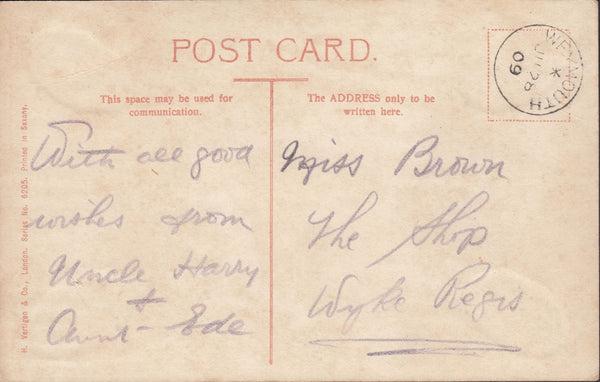 POST CARD.
This space may be used for
communication.
The ADDRESS only to be
written here.
WEYMOUTH
JU 28
09
With all good
wishes from
Uncle Harry
+
Aunt Ede
Miss Brown
The Ship
Wyke Regis
H. Vertigen & Co., London. Series No. 6205. Printed in Saxony.